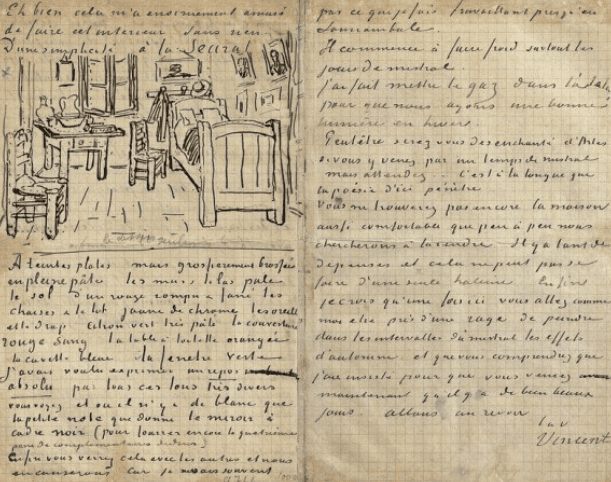 Eh bien cela m'a enormement amusé
de faire cet interieur sans rien.
D'une simplicité à la Seurat.
À teintes plates mais grossierement brossées
en pleine pâte les murs lilas pale
le sol d'un rouge rompu & fané les
chaises & le lit jaune de chrome les oreillers
et le drap citron vert très pâle la couverture
rouge sang la table à toilette orangée
la cuvette bleue la fenetre verte
J'avais voulu exprimer un repos
absolu par tous ces tons très divers
vous voyez et où il n'y a de blanc que
la petite note que donne le miroir à
cadre noir (pour fourrer encore la quatrième
paire de complementaires dedans)
Enfin vous verrez cela avec les autres et nous
en causerons car je ne sais souvent
par ce que je fais travaillant presqu'en
somnambule.
Il commence à faire froid surtout les
jours de mistral.
j'ai fait mettre le gaz dans l'atelier
pour que nous ayons une bonne
lumière en hiver.
Peutêtre serez vous desenchanté d'Arles
si vous y venez par un temps de mistral
mais attendez... C'est à la longue que
la poésie d'ici pénètre.
Vous ne trouverez pas encore la maison
aussi confortable que peu à peu nous
chercherons à la rendre. Il y a tant de
depenses et cela ne peut pas se
faire d'une seule haleine. Enfin
je crois qu'une fois ici vous allez comme
moi etre pris d'une rage de peindre
dans les intervalles du mistral les effets
d'automne. et que vous comprendrez que
j'ai insisté pour que vous veniez
maintenant qu'il y a de bien beaux
jours allons, au revoir
t. à v.
Vincent